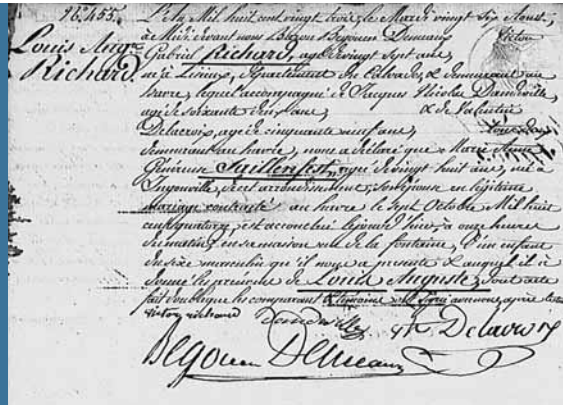 No. 455.
Louis Aug.te
Richard
L'An Mil huit cent vingt trois, le Mardi vingt Six Aoust,
à Midi, devant nous Begouen Demeaux
Victor
Gabriel Richard, agé de vingt sept ans,
né à Lisieux, département du Calvados & demeurant au
havre, lequel accompagné de Jacques Nicolas Dandville,
agé de soixante deux ans, & de Valentin
Delacroix, agé de cinquante neuf ans,
demeurant au havre, nous a déclaré que Marie Anne
Généreuse Taillenfest, agée de vingt huit ans, née à
Ingouville, de cet arrondissement, son épouse en légitime
mariage contracté au havre le Sept Octobre Mil huit
cent, est accouchée hier à onze heures
du matin, en sa maison rue de la fontaine, d'un enfant
du sexe masculin qu'il nous a présenté & auquel il a
donné les prénoms de Louis Auguste, dont acte
fait double que les comparant & témoins ont signé avec nous après lecture
victor richard
Delacroix
Begouen Demeaux